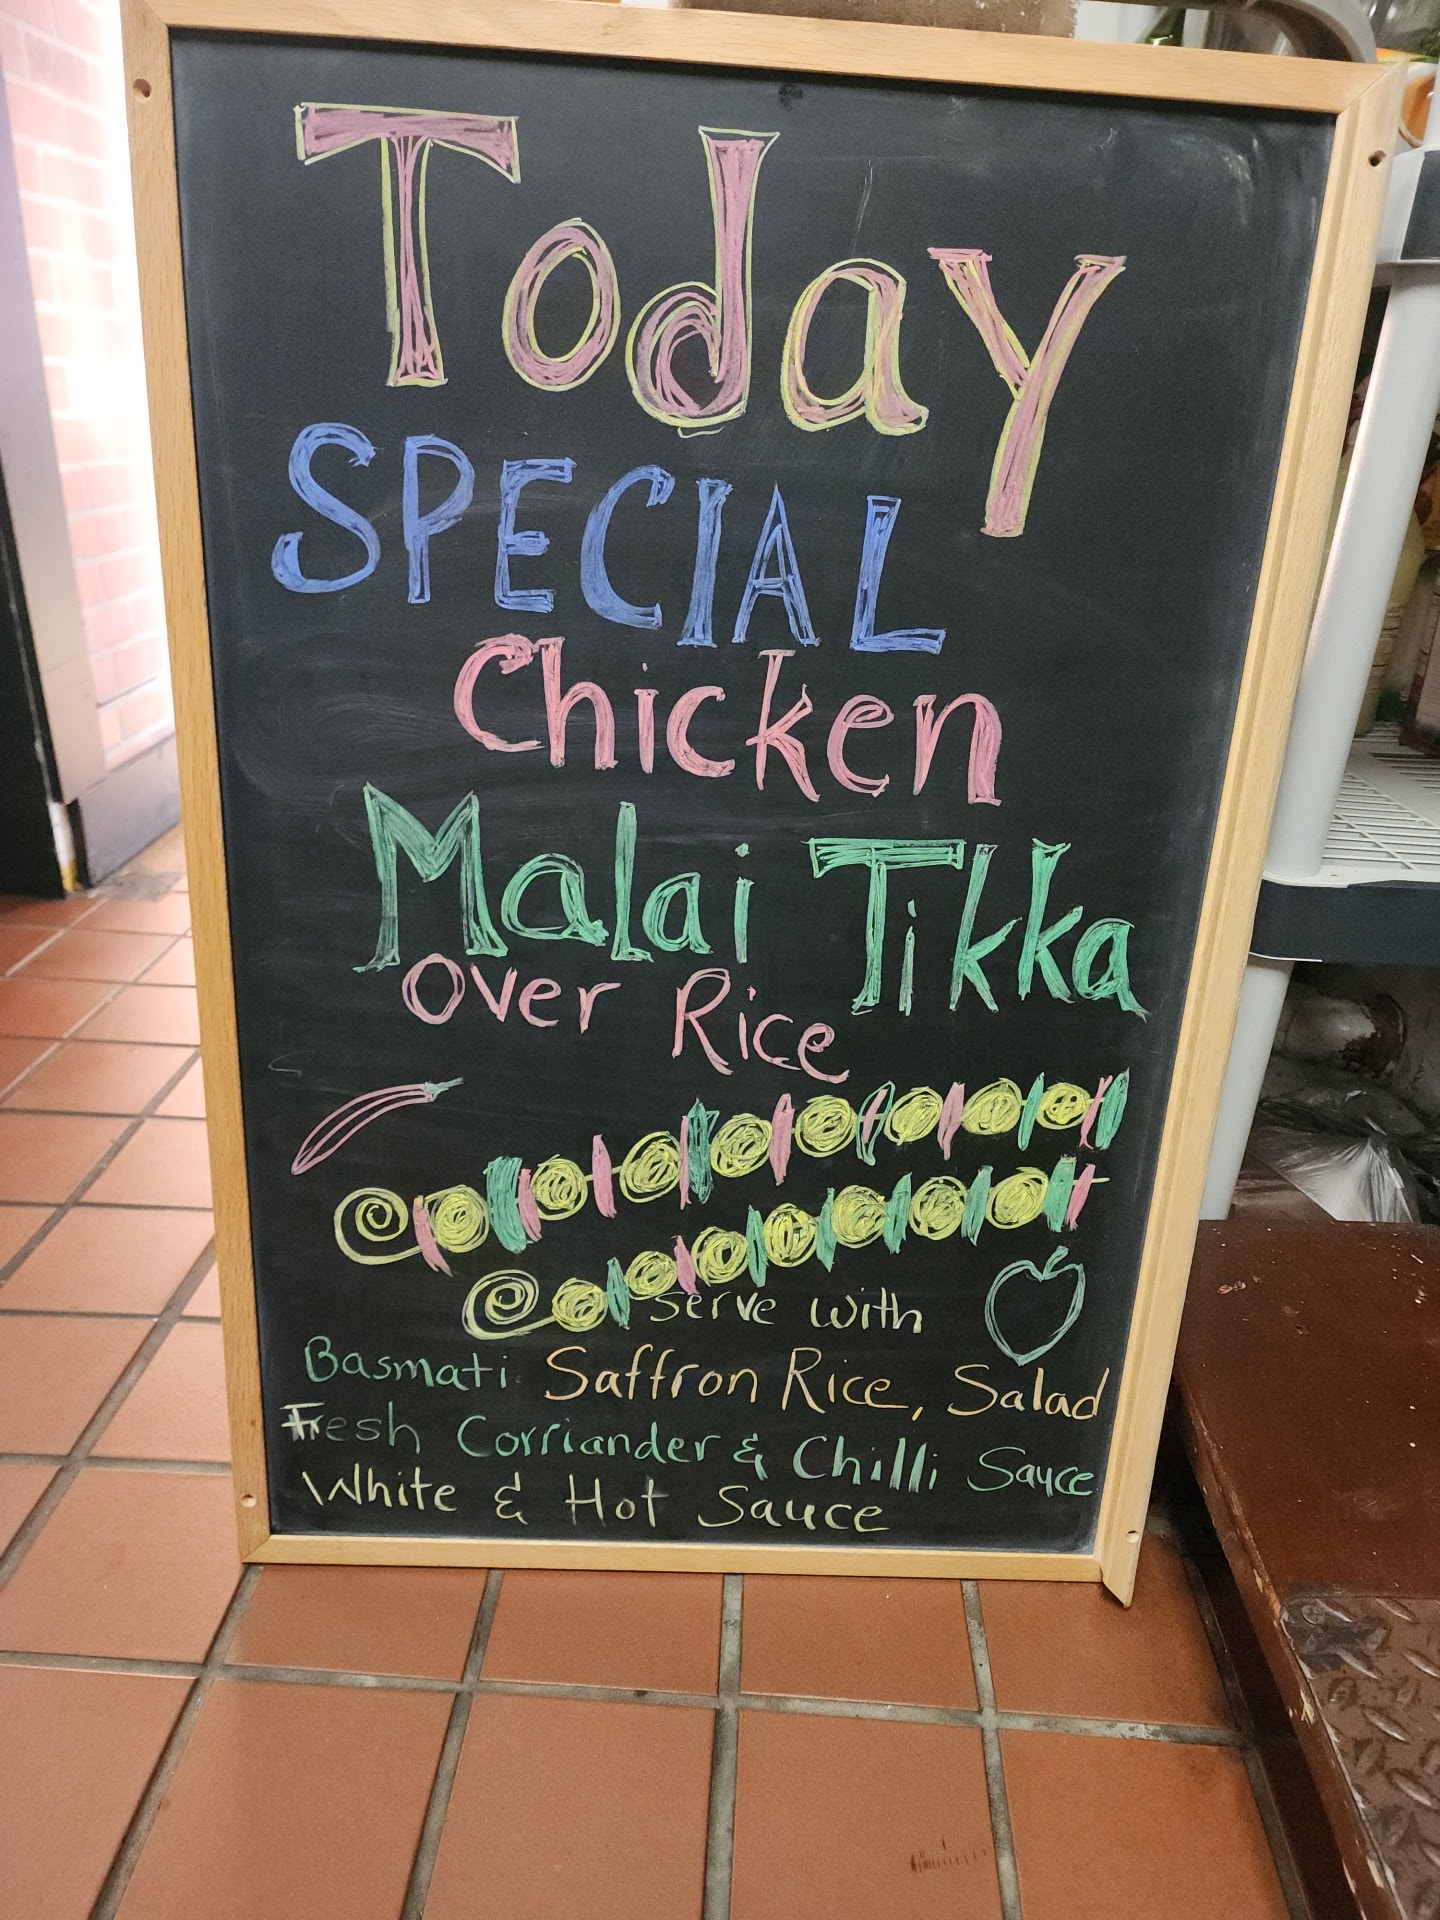 Today
SPECIAL
Chicken
Malai Tikka
over Rice
serve with
Basmati Saffron Rice, Salad
Fresh Corriander & Chilli Sauce
White & Hot Sauce